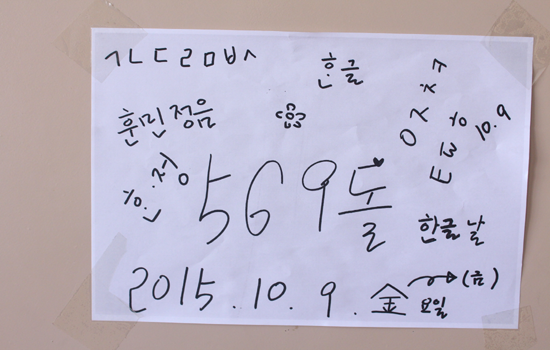 ㄱㄴㄷㄹㅁㅂㅅ
한글
ㅇㅈㅊㅋ
ㅌㅍㅎ
10.9
훈민정음
569돌
한글날
2015.10.9. 金 (금)
요일